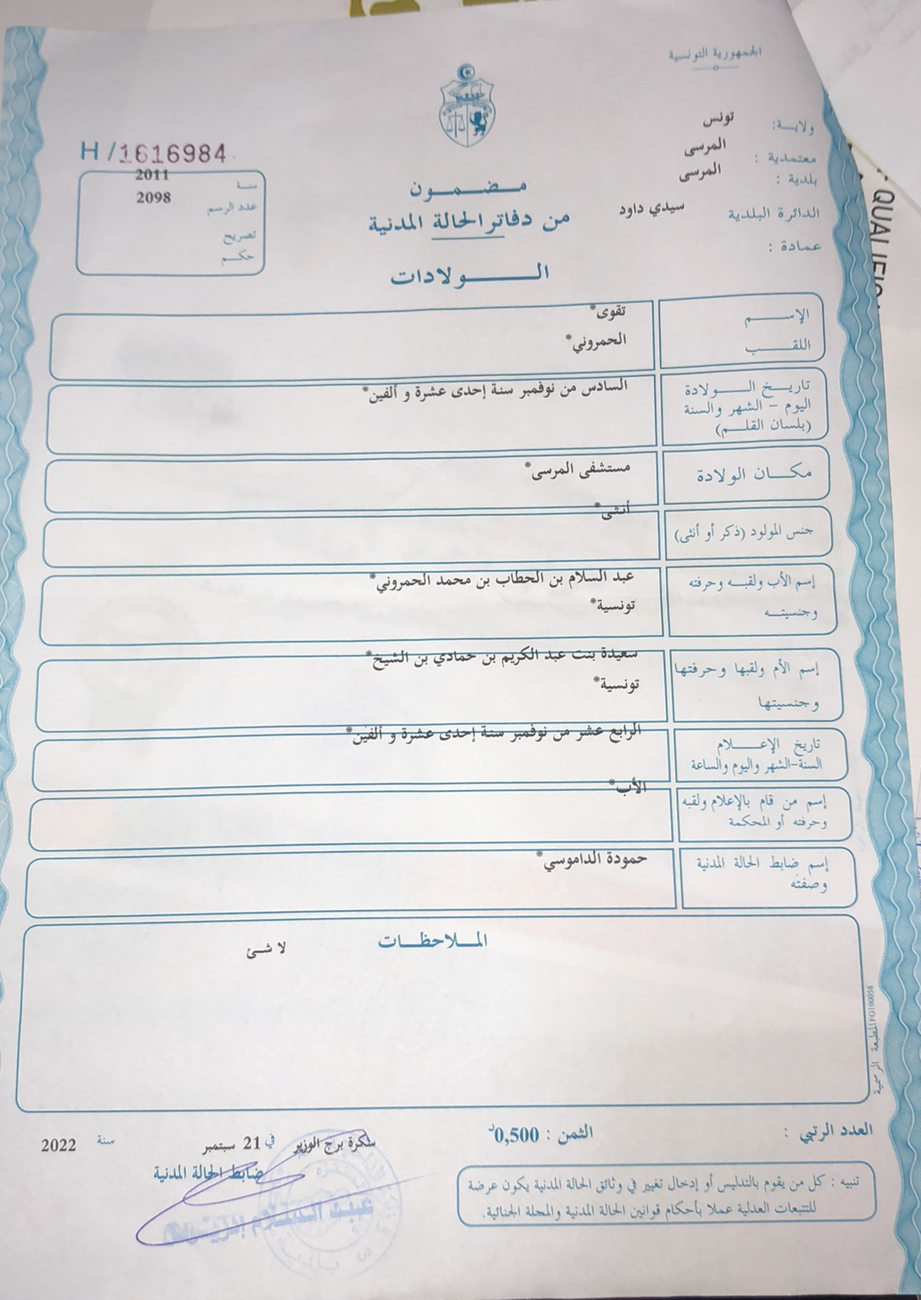 الجمهورية التونسية
ولاية: تونس
معتمدية : المرسى
بلدية : المرسى
الدائرة البلدية سيدي داود
عمادة :
H /1616984
سنة 2011
عدد الرسم 2098
تصريح
حكم
مضمون
من دفاتر الحالة المدنية
الولادات
الإسم تقوى*
اللقب الحمروني*
تاريخ الولادة السادس من نوفمبر سنة إحدى عشرة و ألفين*
اليوم - الشهر والسنة
(بلسان القلم)
مكان الولادة مستشفى المرسى*
جنس المولود (ذكر أو أنثى) أنثى*
إسم الأب ولقبه وحرفته عبد السلام بن الحطاب بن محمد الحمروني*
وجنسيته تونسية*
إسم الأم ولقبها وحرفتها سعيدة بنت عبد الكريم بن حمادي بن الشيخ*
وجنسيتها تونسية*
تاريخ الإعلام الرابع عشر من نوفمبر سنة إحدى عشرة و ألفين*
السنة-الشهر واليوم والساعة
إسم من قام بالإعلام ولقبه الأب*
وحرفته أو المحكمة
إسم ضابط الحالة المدنية حمودة الداموسي*
وصفته
الملاحظات
لا شئ
المطبعة الرسمية
العدد الرتبي :
الثمن : 0,500د
سكرة برج الوزير في 21 سبتمبر سنة 2022
ضابط الحالة المدنية
تنبيه : كل من يقوم بالتدليس أو إدخال تغيير في وثائق الحالة المدنية يكون عرضة
للتتبعات العدلية عملا بأحكام قوانين الحالة المدنية والمجلة الجنائية.